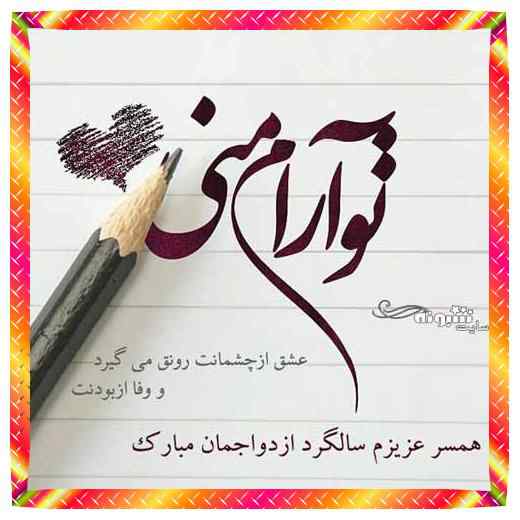 تو آرام منی
سایت نشبونه
عشق ازچشمانت رونق می گیرد
و وفا ازبودنت
همسر عزیزم سالگرد ازدواجمان مبارک